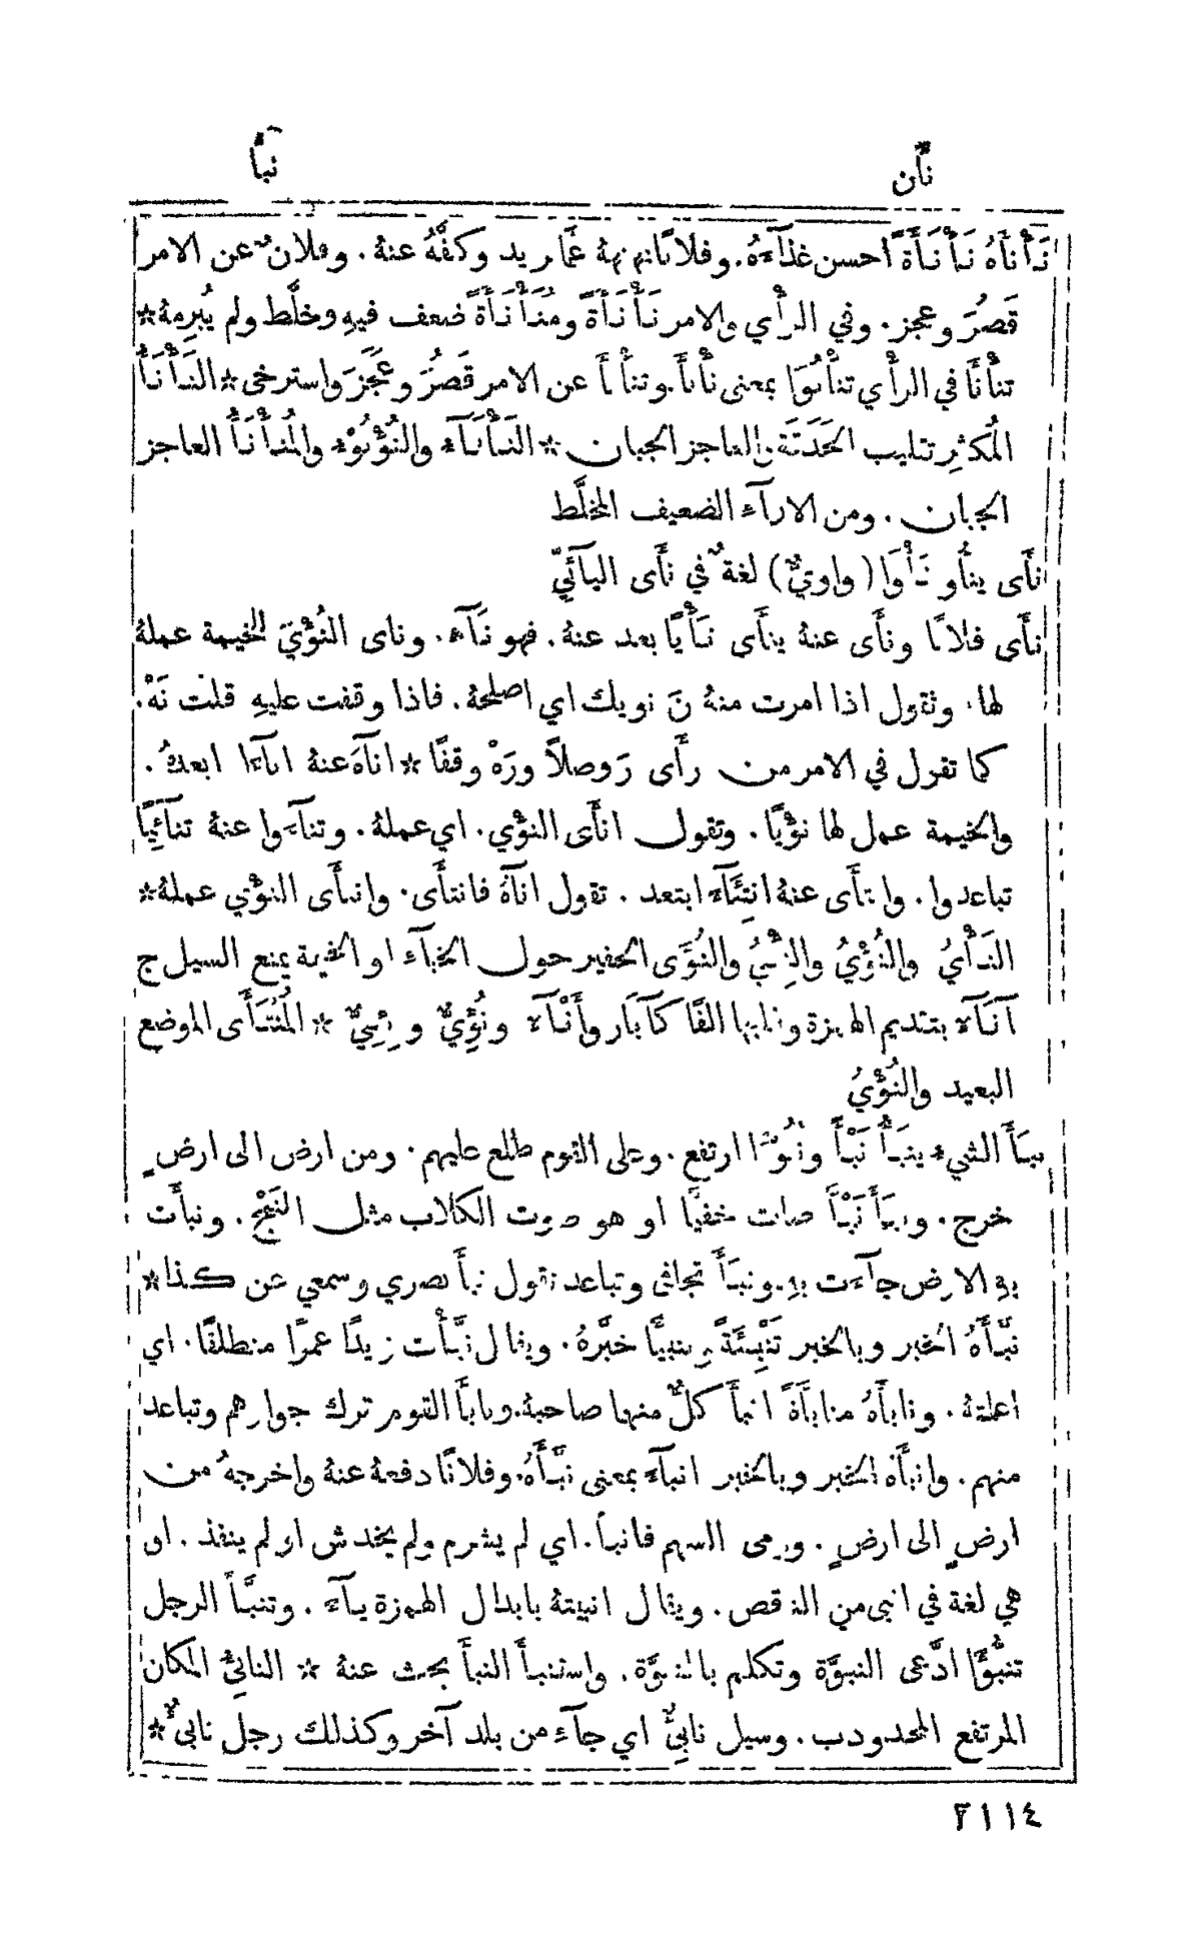 نأن
نبأ
نَأْنَأَهُ نَأْنَأَةً احسن غذآءَهُ. وفلانًا نهنههُ عمَّا يريد وكفَّهُ عنهُ. وفلانٌ عن الامر
قَصُرَ وعجز. وفي الرأْي والامر نَأْنَأَةً ومُنَأْنَأَةً ضعف فيهِ وخلَّط ولم يُبرِمهُ *
تنأْنأَ في الرأْي تنأْنُؤًا بمعنى نأْنأَ. وتنأْنأَ عن الامر قَصُرَ وعَجَزَ واسترخى * النَأْنَأُ
المُكثِر تقليب الحَدَقَة والعاجز الجبان * النَأْنَآءُ والنُؤْنُوْءُ والمُنَأْنَأُ العاجز
الجبان. ومن الارآءِ الضعيف المخلَّط
نأَى ينأُو نَأْوًا (واويٌّ) لغةٌ في نأَى اليآئيّ
نأَى فلانًا ونأَى عنهُ ينأَى نَأْيًا بعد عنهُ. فهو نآءٍ. وناى النُؤْيَ للخيمة عملهُ
لها. وتقول اذا امرت منهُ نَ نويك اي اصلحهُ. فاذا وقفت عليهِ قلت نَهْ.
كما تقول في الامر من رأَى رَ وصلاً ورَهْ وقفًا * انآهُ عنهُ انآءًا ابعدهُ.
والخيمة عمل لها نؤْيًا. وتقول انأَى النؤْي. اي عملهُ. وتنآءَوا عنهُ تنائِيًا
تباعدوا. وانتأَى عنهُ انتِئَآءً ابتعد. تقول انآهُ فانتأَى. وانتأَى النؤْي عملهُ *
النَأْيُ والنُؤْيُ والنِئْيُ والنُؤَى الحفير حول الخبآءِ او الخيمة يمنع السيل ج
آنَآء بتقديم الهمزة وقلبها الفًا كآبَار وأَنْآء ونُؤِيٌّ ونِئِيٌّ * المُنْتَأَى الموضع
البعيد والنُؤْيُ
نبَأَ الشيءُ ينبَأُ نَبْأً ونُبُوْءًا ارتفع. وعلى القوم طلع عليهم. ومن ارض الى ارضٍ
خرج. ونبَأَ نَبْأً صات خفيًّا او هو صوت الكلاب مثل النَبْح. ونبأَت
بهِ الارض جآءَت بهِ. ونبَأَ تجافى وتباعد تقول نبأَ بصري وسمعي عن كذا *
نبَّأَهُ الخبر وبالخبر تَنْبِئَةً وتنبيئًا خبَّرهُ. ويقال نبَّأْت زيدًا عمرًا منطلقًا. اي
اعلمتهُ. ونابأَهُ منابأَةً انبأَ كلٌّ منهما صاحبهُ. ونابأَ القوم ترك جوارهم وتباعد
منهم. وانبأَهُ الخبر وبالخبر انبآءً بمعنى نبَّأَهُ. وفلانًا دفعهُ عنهُ واخرجهُ من
ارضٍ الى ارضٍ. ورمى السهم فانبأَ. اي لم يشرم ولم يخدش او لم ينفذ. او
هي لغة في انبى من الناقص. ويقال انبيتهُ بابدال الهمزة يآءً. وتنبَّأَ الرجل
تنبُّؤًا ادَّعى النبوَّة وتكلم بالنبوَّة. واستنبأَ النبأَ بحث عنهُ * النابئُ المكان
المرتفع المحدودب. وسيل نابئٌ اي جآءَ من بلد آخر وكذلك رجل نابئٌ *
٢١١٤